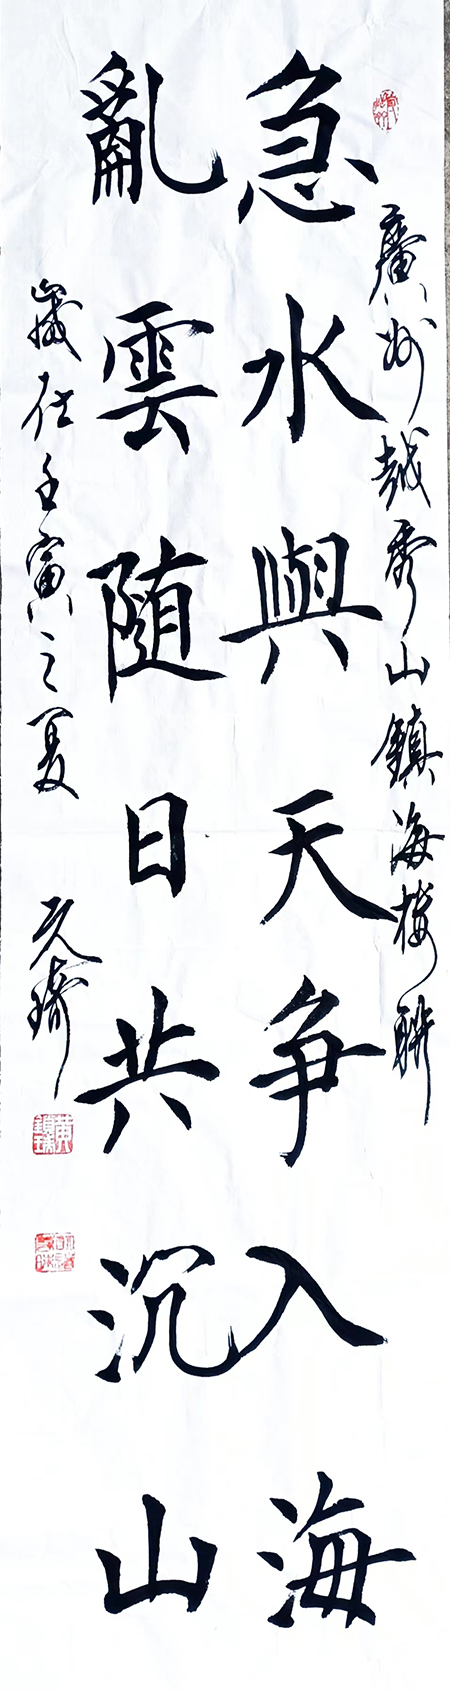 廣州越秀山鎮海樓聯
急水與天争入海
亂雲随日共沉山
歲在壬寅之夏
元琦